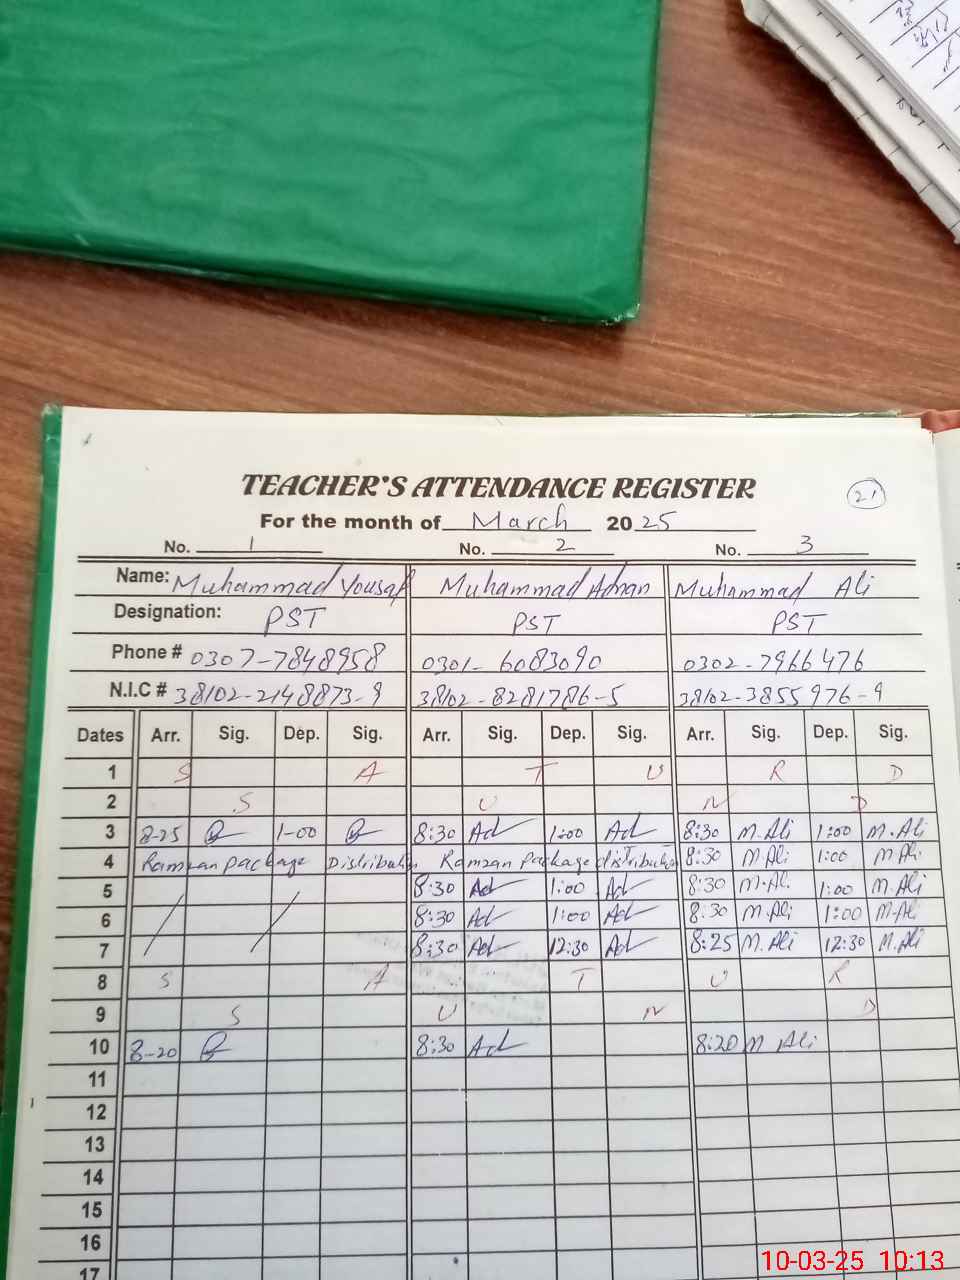 TEACHER'S ATTENDANCE REGISTER
21
For the month of March 2025
No. 1 No. 2 No. 3
Name: Muhammad Yousaf Muhammad Adnan Muhammad Ali
Designation: PST PST PST
Phone # 0307-7848958 0301-6083090 0302-7966476
N.I.C # 38102-2148873-9 38102-8281786-5 38102-3855976-9
Dates Arr. Sig. Dep. Sig. Arr. Sig. Dep. Sig. Arr. Sig. Dep. Sig.
1 S A T U R D
2 S U N D
3 8-25 1-00 8:30 Ad 1:00 Ad 8:30 M.Ali 1:00 M.Ali
4 Ramzan package Distribution Ramzan package distribution 8:30 M.Ali 1:00 M.Ali
5 8:30 Ad 1:00 Ad 8:30 M.Ali 1:00 M.Ali
6 8:30 Ad 1:00 Ad 8:30 M.Ali 1:00 M.Ali
7 8:30 Ad 12:30 Ad 8:25 M.Ali 12:30 M.Ali
8 S A T U R
9 S U N D
10 8-20 8:30 Ad 8:20 M Ali
11
12
13
14
15
16
17
10-03-25 10:13